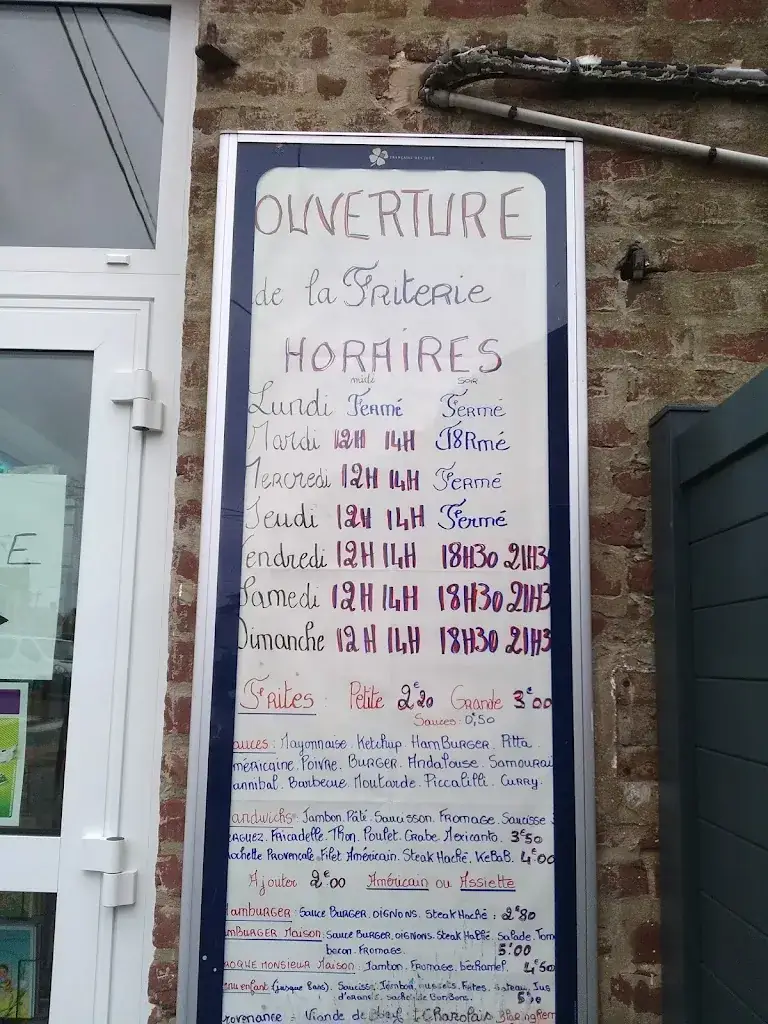 FRANÇAISE DES JEUX
OUVERTURE
de la FRITERIE
HORAIRES
midi soir
Lundi FERMÉ FERMÉ
Mardi 12H 14H
Mercredi 12H 14H FERMÉ
Jeudi 12H 14H FERMÉ
endredi 12H 14H 18H30 21H3
Samedi 12H 14H 18H30 21H3
Dimanche 12H 14H 18H30 21H3
E
FRITES: Petite 2€20 Grande 3€00
Sauces: 0,50
auces: Mayonnaise. Ketchup. HamBURGER. Pitta.
méricaine. Poivre. BURGER. Andalouse. Samourai
annibal. Barbecue. Moutarde. Piccalilli. CURRY.
andwichs: Jambon. Pâté. Saucisson. Fromage. Saucisse
RGUEZ. Fricadelle. Thon. Poulet. Crabe. Mexicanto. 3€50
ochette Provençale. Filet Américain. Steak Haché. KeBaB. 4€00
Ajouter 2€00 Américain ou Assiette
Hamburger: Sauce BURGER. oignons. Steak Haché: 2€80
mBURGER Maison: Sauce BURGER. oignons. Steak Haché. Salade. Tom
bacon. Fromage. 5€00
ROQUE MONSIEUR Maison: Jambon. Fromage. béchamel. 4€50
enu enfant (jusque 8ans). Saucisse. Jambon. nuggets. Frites. Gateau. Jus
d'orange. sachet de BonBons.
rovenance = Viande de Bœuf Charolais